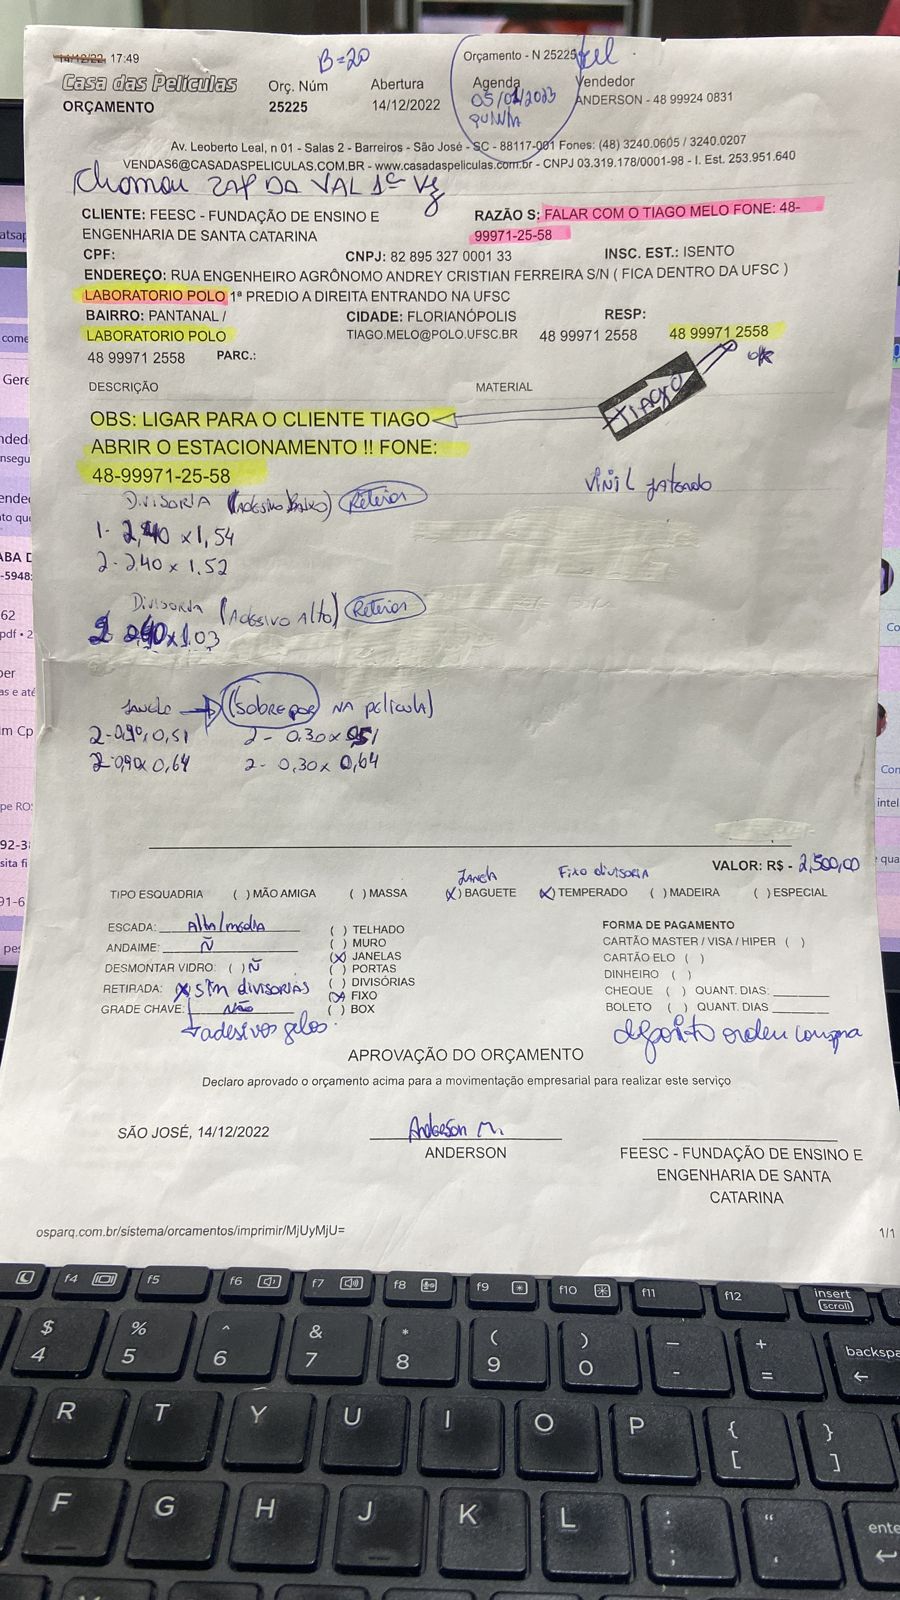 14/12/22, 17:49
B=20
Orçamento - N 25225
Casa das Películas
ORÇAMENTO
Orç. Núm
25225
Abertura
14/12/2022
Agenda
05/01/2023
QUINTA
Vendedor
ANDERSON - 48 99924 0831
Av. Leoberto Leal, n 01 - Salas 2 - Barreiros - São José - SC - 88117-001 Fones: (48) 3240.0605 / 3240.0207
VENDAS6@CASADASPELICULAS.COM.BR - www.casadaspeliculas.com.br - CNPJ 03.319.178/0001-98 - I. Est. 253.951.640
Chamou ZAP DA VAL 1ª Vez
CLIENTE: FEESC - FUNDAÇÃO DE ENSINO E
ENGENHARIA DE SANTA CATARINA
RAZÃO S: FALAR COM O TIAGO MELO FONE: 48-
99971-25-58
CPF:
CNPJ: 82 895 327 0001 33
INSC. EST.: ISENTO
ENDEREÇO: RUA ENGENHEIRO AGRÔNOMO ANDREY CRISTIAN FERREIRA S/N ( FICA DENTRO DA UFSC )
LABORATORIO POLO 1ª PREDIO A DIREITA ENTRANDO NA UFSC
BAIRRO: PANTANAL /
LABORATORIO POLO
CIDADE: FLORIANÓPOLIS
RESP:
TIAGO.MELO@POLO.UFSC.BR
48 99971 2558
48 99971 2558
48 99971 2558
PARC.:
ok
DESCRIÇÃO
MATERIAL
TIAGO
OBS: LIGAR PARA O CLIENTE TIAGO
ABRIR O ESTACIONAMENTO !! FONE:
48-99971-25-58
Vinil jateado
DIVISORIA (Adesivo Baixo) Retirar
1- 2,40 x 1,54
2- 2,40 x 1,52
Divisoria (Adesivo Alto) Retirar
2 2,40 x 1.03
Janela (sobrepor NA película)
2- 0,90 x 0,51 2- 0.30 x 0,51
2- 0,90 x 0,64 2- 0,30 x 0,64
VALOR: R$ - 2,500,00
Janela
Fixo divisoria
TIPO ESQUADRIA ( ) MÃO AMIGA ( ) MASSA (X) BAGUETE (X) TEMPERADO ( ) MADEIRA ( ) ESPECIAL
ESCADA: Alta/média
ANDAIME: Ñ
DESMONTAR VIDRO: ( ) Ñ
RETIRADA: X sim divisorias
GRADE CHAVE: Não
adesivos gelos.
( ) TELHADO
( ) MURO
(X) JANELAS
( ) PORTAS
( ) DIVISÓRIAS
(X) FIXO
( ) BOX
FORMA DE PAGAMENTO
CARTÃO MASTER / VISA / HIPER ( )
CARTÃO ELO ( )
DINHEIRO ( )
CHEQUE ( ) QUANT. DIAS:
BOLETO ( ) QUANT. DIAS
deposito orden compra
APROVAÇÃO DO ORÇAMENTO
Declaro aprovado o orçamento acima para a movimentação empresarial para realizar este serviço
SÃO JOSÉ, 14/12/2022
Anderson M.
ANDERSON
FEESC - FUNDAÇÃO DE ENSINO E
ENGENHARIA DE SANTA
CATARINA
osparq.com.br/sistema/orcamentos/imprimir/MjUyMjU=
1/1
f4 f5 f6 f7 f8 f9 f10 f11 f12 insert
scroll
$ % ^ & * ( ) — +
4 5 6 7 8 9 0 - = backspa
R T Y U I O P { }
[ ]
F G H J K L : “ ente
; '